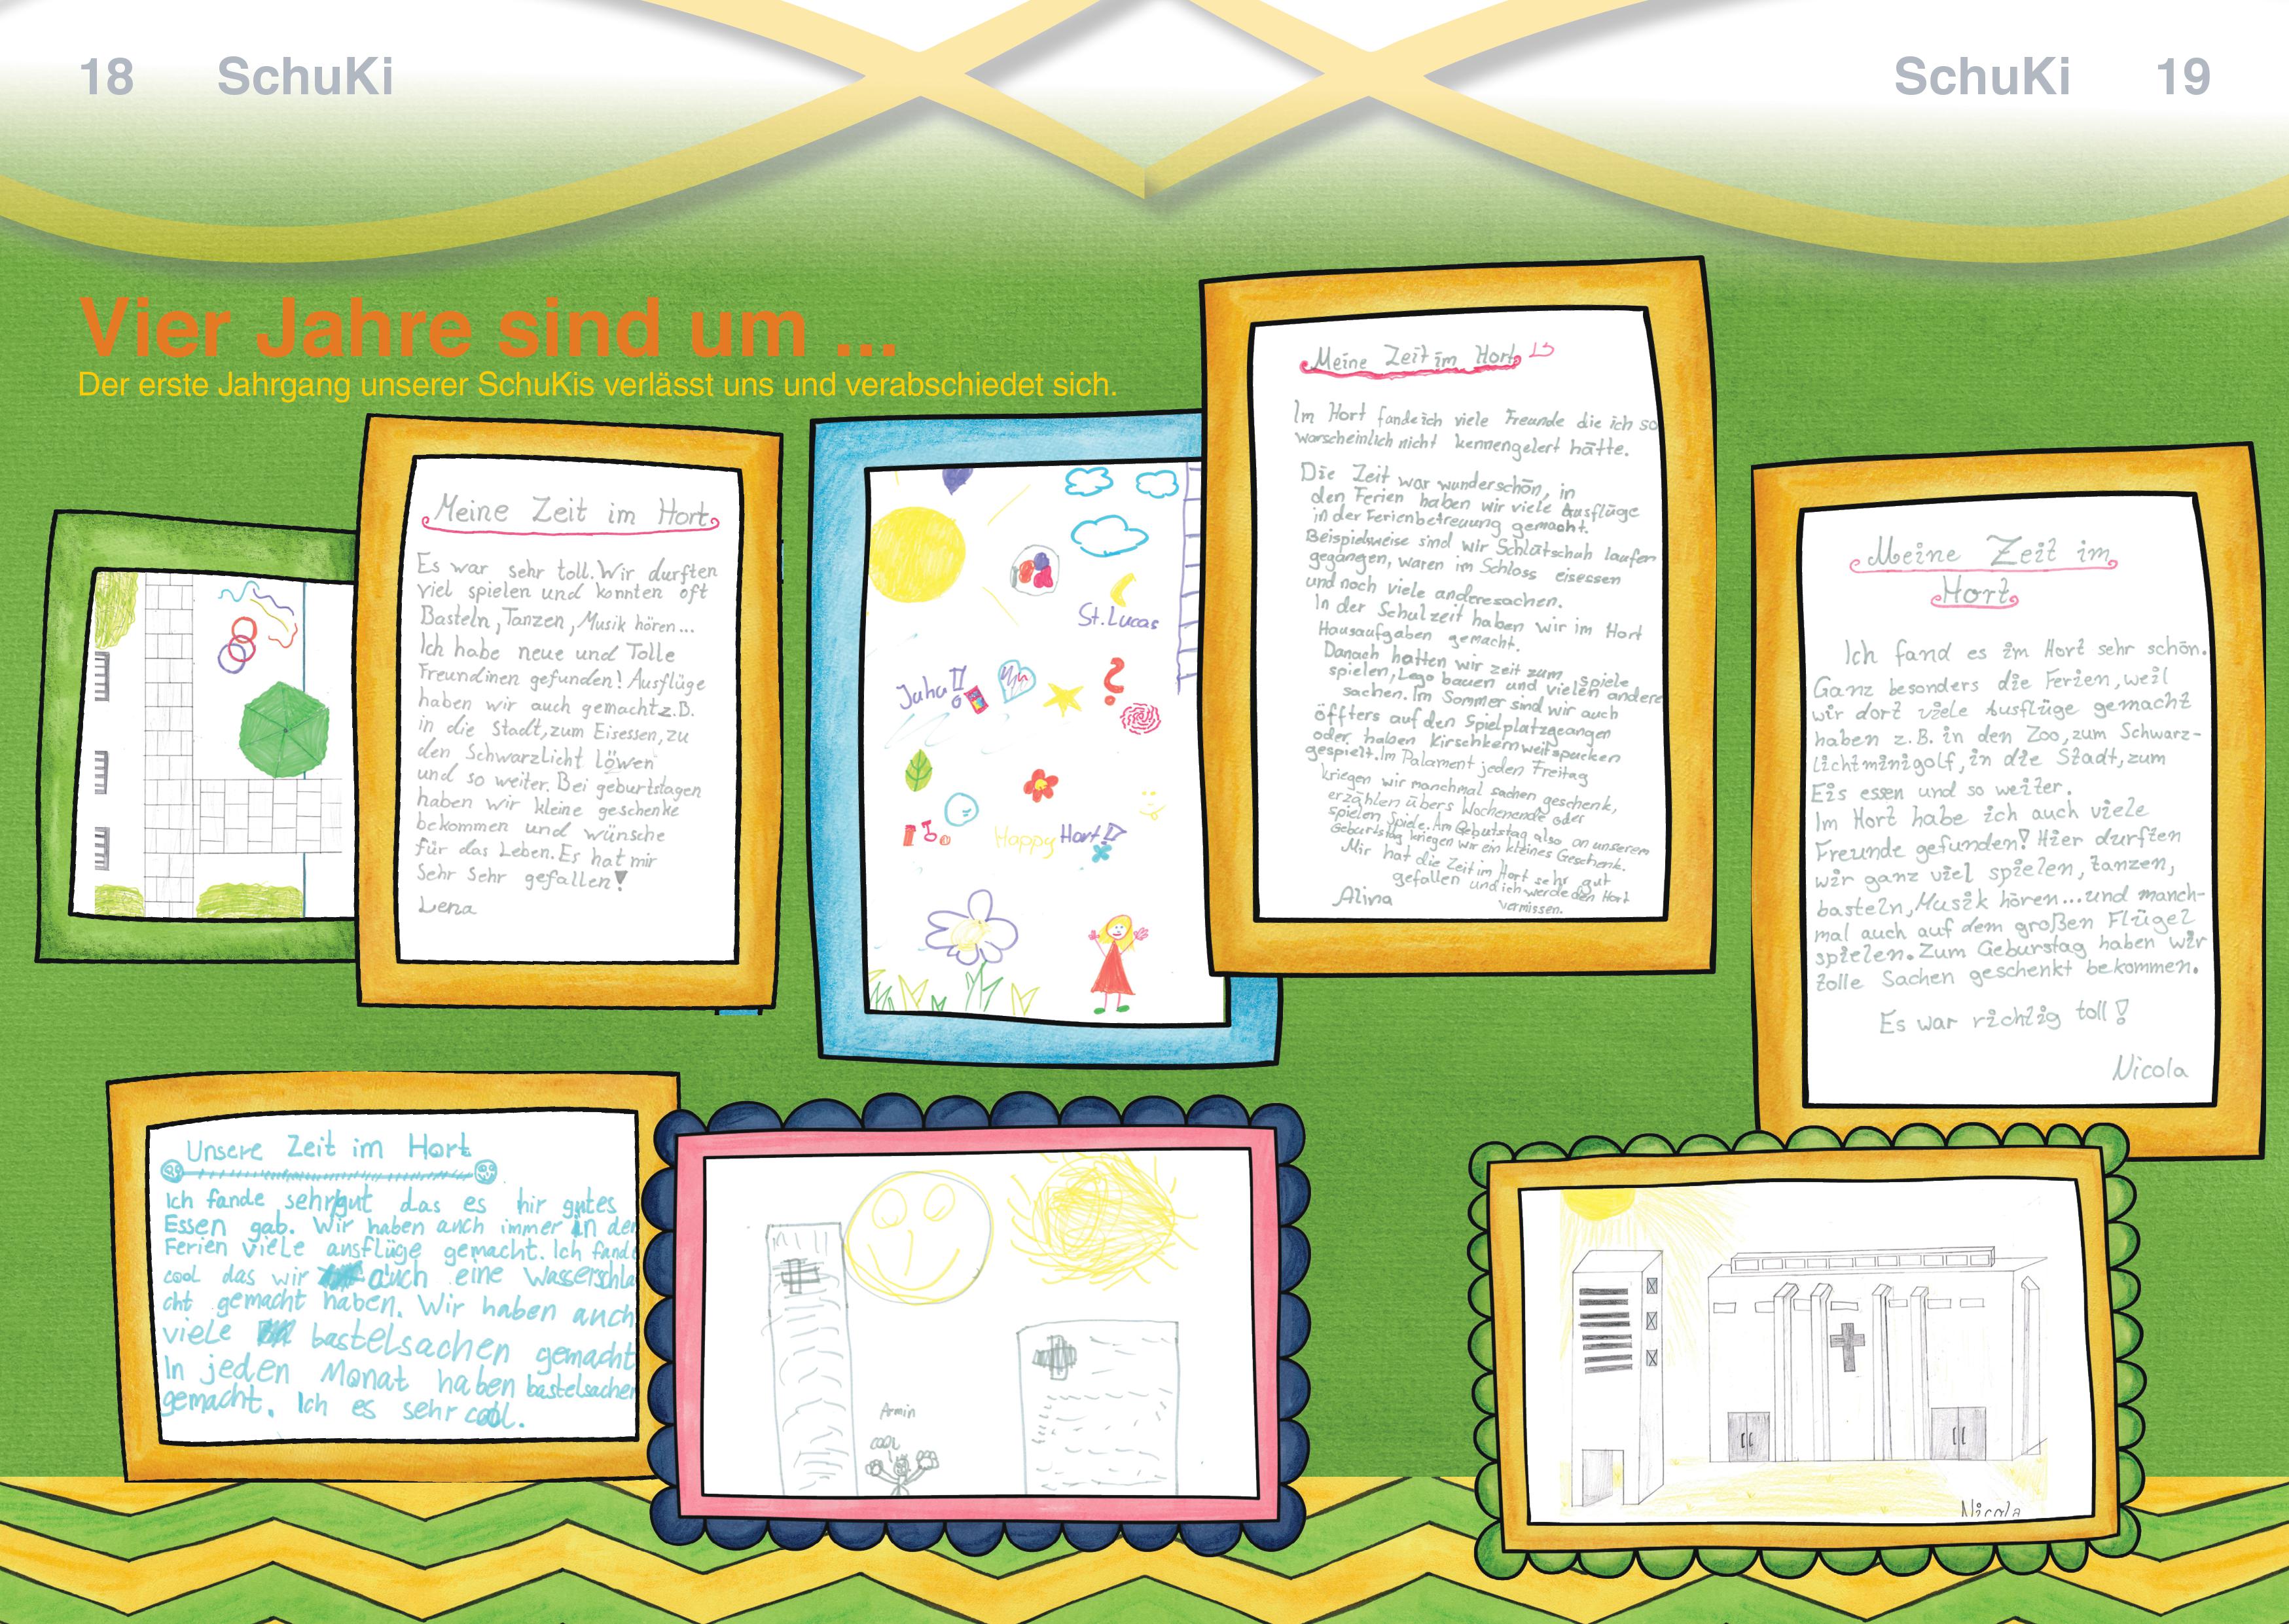 18 SchuKi
SchuKi 19
Vier Jahre sind um ...
Der erste Jahrgang unserer SchuKis verlässt uns und verabschiedet sich.
Meine Zeit im Hort
Es war sehr toll. Wir durften
viel spielen und konnten oft
Basteln, Tanzen, Musik hören...
Ich habe neue und Tolle
Freundinen gefunden! Ausflüge
haben wir auch gemacht z.B.
in die Stadt, zum Eisessen, zu
den Schwarzlicht löwen
und so weiter. Bei geburtstagen
haben wir kleine geschenke
bekommen und wünsche
für das Leben. Es hat mir
Sehr Sehr gefallen!
Lena
St. Lucas
Juhu!!
?
Happy Hort!
Meine Zeit im Hort
Im Hort fande ich viele Freunde die ich so
warscheinlich nicht kennengelert hätte.
Die Zeit war wunderschön, in
den Ferien haben wir viele Ausflüge
in der Ferienbetreuung gemacht.
Beispielsweise sind wir Schlatschuh laufen
gegangen, waren im Schloss eisessen
und noch viele anderesachen.
In der Schulzeit haben wir im Hort
Hausaufgaben gemacht.
Danach hatten wir zeit zum spiele
spielen, Lego bauen und vielen andere
sachen. Im Sommer sind wir auch
öffters auf den Spielplatzgeangen
oder haben Kirschkernweitspucken
gespielt. Im Palament jeden Freitag
kriegen wir manchmal sachen geschenk,
erzählen übers Wochenende oder
spielen Spiele. Am Gebutstag also an unserem
Geburtstag kriegen wir ein kleines Geschenk.
Mir hat die Zeit im Hort sehr gut
gefallen und ich werde den Hort
vermissen.
Alina
Meine Zeit im
Hort
Ich fand es im Hort sehr schön.
Ganz besonders die Ferien, weil
wir dort viele Ausflüge gemacht
haben z.B. in den Zoo, zum Schwarz-
lichtminigolf, in die Stadt, zum
Eis essen und so weiter.
Im Hort habe ich auch viele
Freunde gefunden! Hier durften
wir ganz viel spielen, tanzen,
basteln, Musik hören...und manch-
mal auch auf dem großen Flügel
spielen. Zum Geburstag haben wir
tolle Sachen geschenkt bekommen.
Es war richtig toll!
Nicola
Unsere Zeit im Hort
Ich fande sehr gut das es hir gutes
Essen gab. Wir haben auch immer in der
Ferien viele ausflüge gemacht. Ich fande
cool das wir auch eine Wasserschla
cht gemacht haben. Wir haben auch
viele bastelsachen gemacht
In jeden Monat haben bastelsachen
gemacht. Ich es sehr cool.
Armin
cool
Nicola